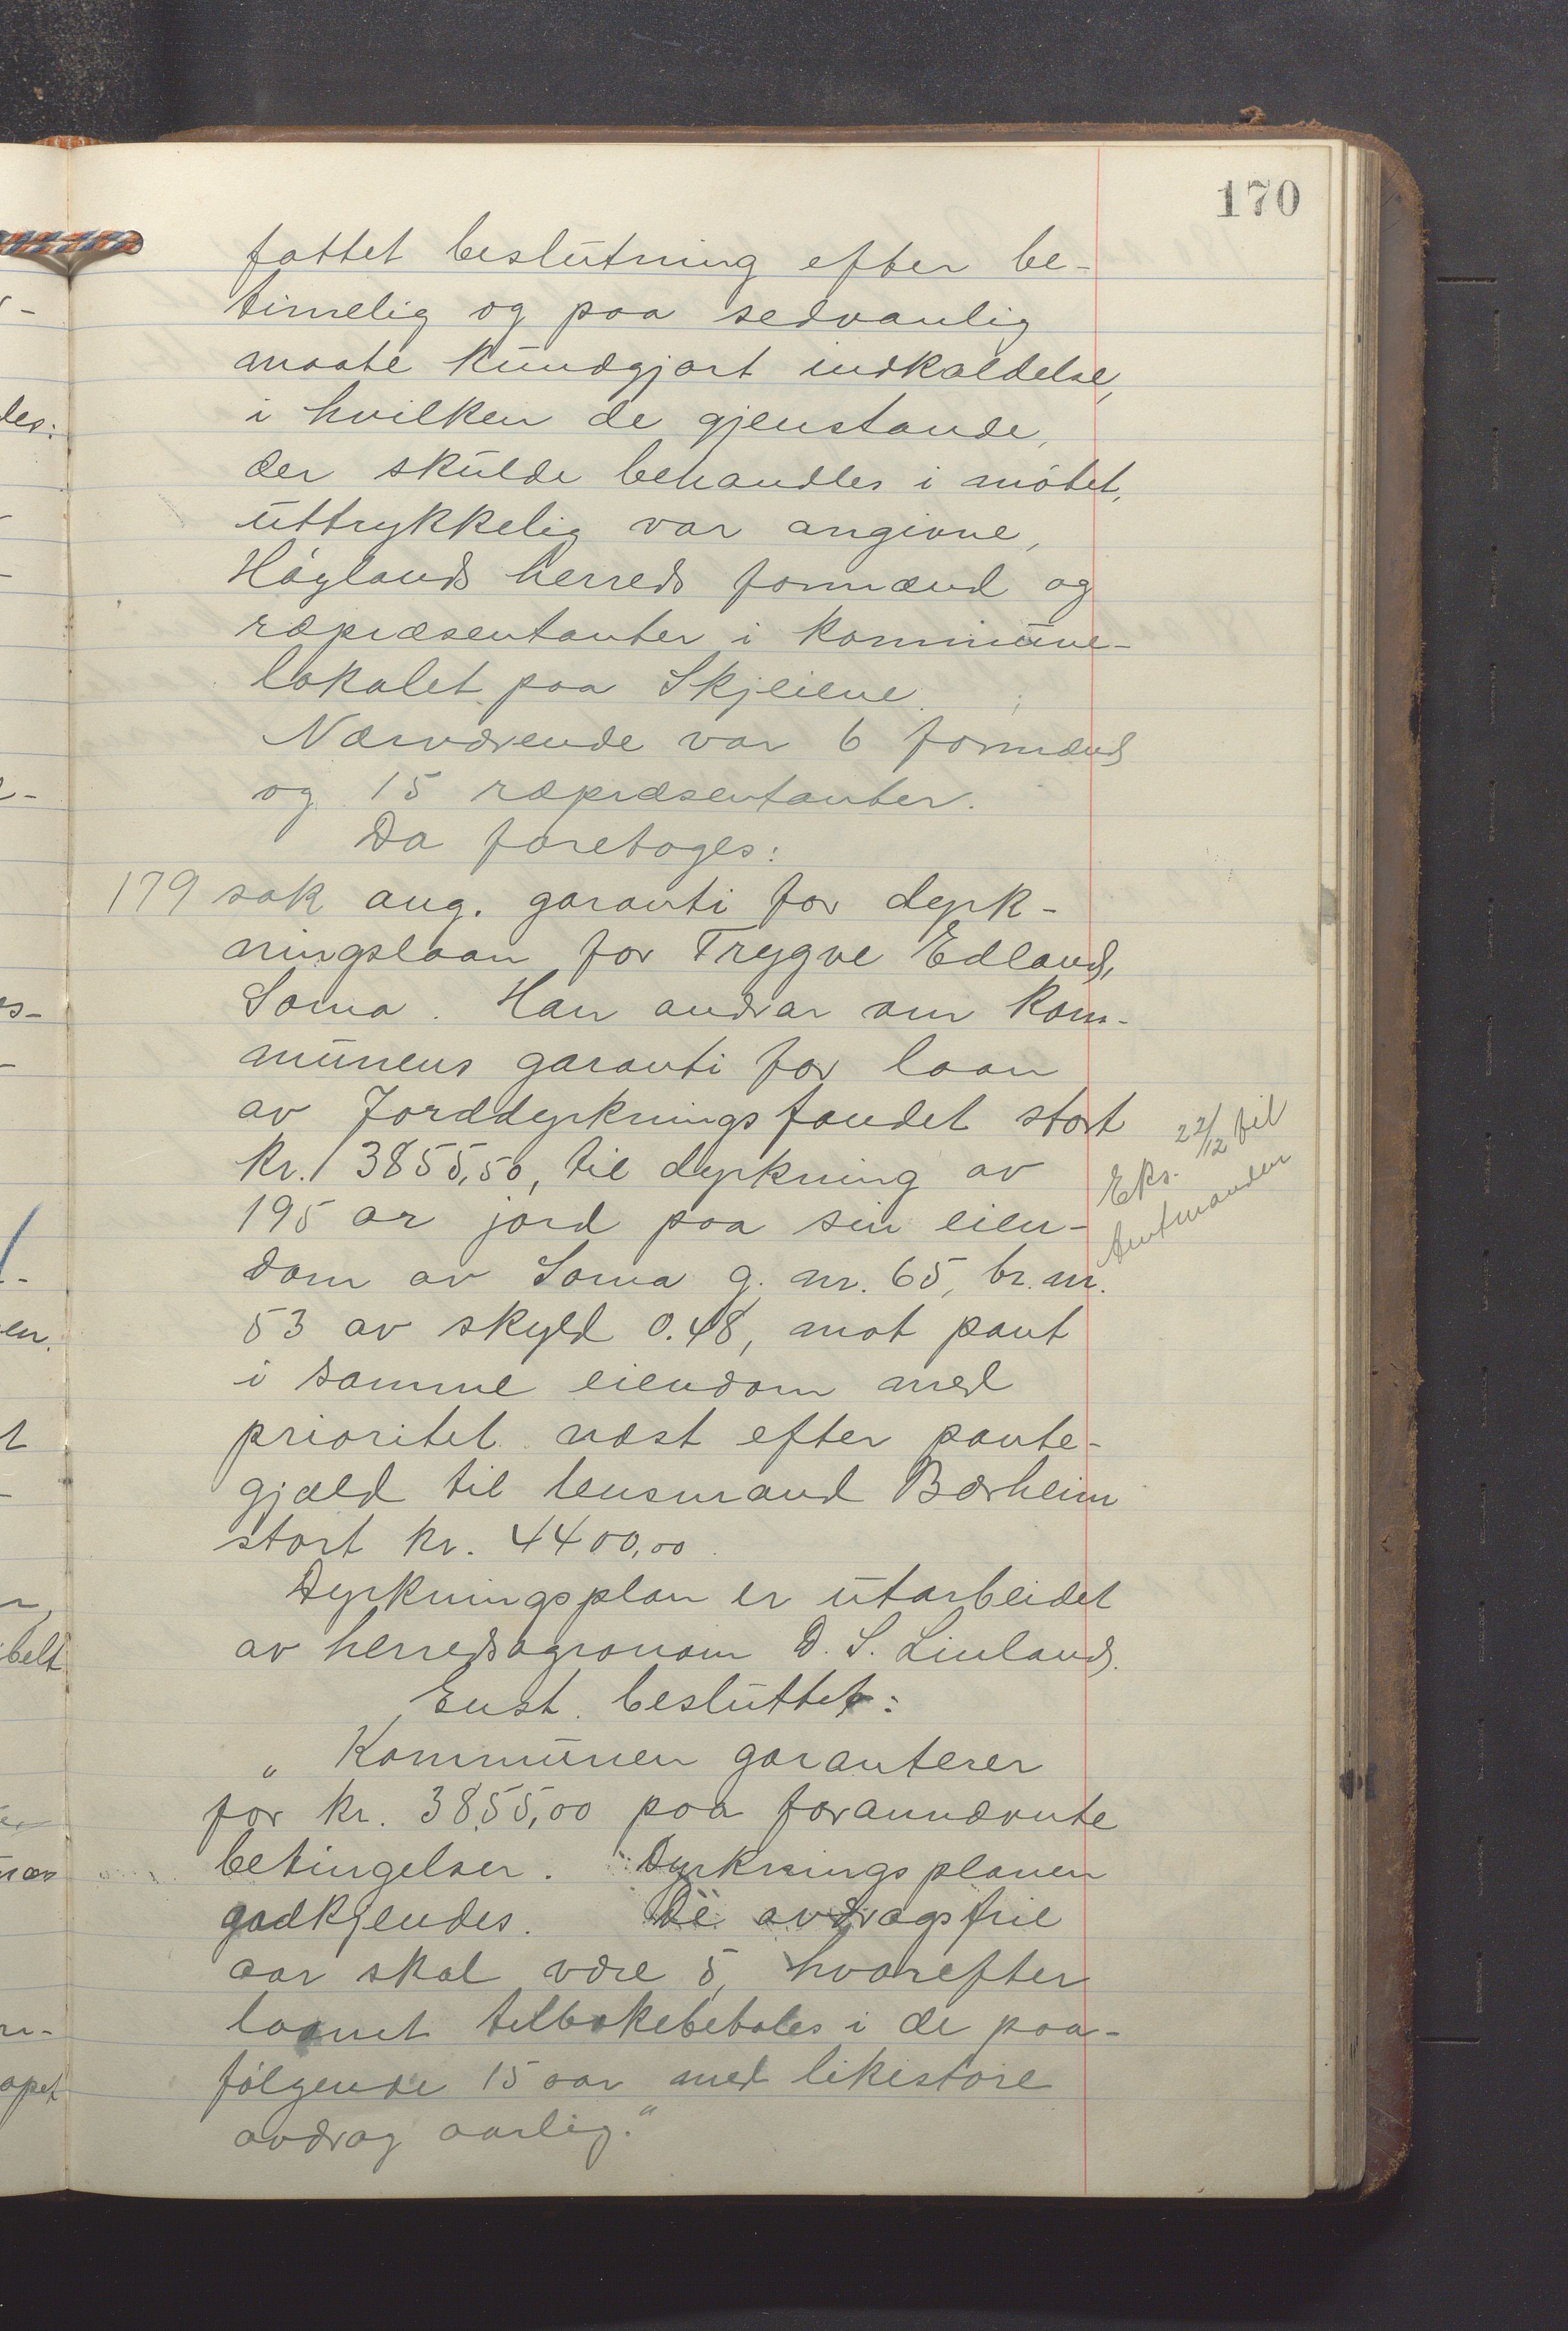 170
fattet beslutning efter be-
timelig og paa sedvanlig
maate kundgjort indkaldelse,
i hvilken de gjenstande,
der skulde behandles i møtet,
uttrykkelig var angivne,
Høylands herreds formænd og
repræsentanter i kommune-
lokalet paa Skjeiene.
Nærværende var 6 formænd
og 15 repræsentanter.
Da foretoges:
179 sak ang. garanti for dyrk-
ningslaan for Trygve Edland,
Soma. Han andrar om kom-
munens garanti for laan
av Jorddyrkningsfondet stort
kr. 3855,50, til dyrkning av
195 ar jord paa sin eien-
dom av Soma g. nr. 65, br. nr.
53 av skyld 0.48, mot pant
i samme eiendom med
prioritet næst efter pante-
gjæld til lensmand Bærheim
stort kr. 4400,00.
Eks. 22/12 til
Amtmanden
Dyrkningsplan er utarbeidet
av herredsagronom D. S. Linland.
Enst. besluttet:
„Kommunen garanterer
for kr. 3855,00 paa forannævnte
betingelser. Dyrkningsplanen
godkjendes. De avdragsfrie
aar skal være 5, hvorefter
laanet tilbakebetales i de paa-
følgende 15 aar med likestore
avdrag aarlig.“